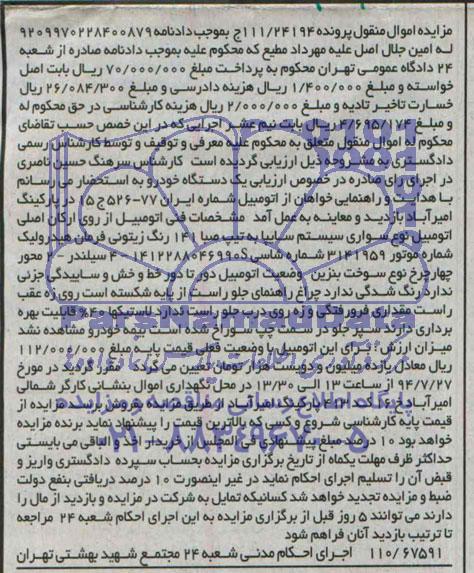 مزایده اموال منقول پرونده ۱۱۱/۲۴۱۹۴ج بموجب دادنامه ۹۲۰۹۹۷۰۲۲۸۴۰۰۸۷۹
له امین جلال اصل علیه مهرداد مطیع که محکوم علیه بموجب دادنامه صادره از شعبه
۲۴ دادگاه عمومی تهران محکوم به پرداخت مبلغ ۷۰/۰۰۰/۰۰۰ ریال بابت اصل
خواسته و مبلغ ۱/۴۰۰/۰۰۰ ریال هزینه دادرسی و مبلغ ۲۶/۰۸۴/۳۰۰ ریال
خسارت تاخیر تادیه و مبلغ ۲/۰۰۰/۰۰۰ ریال هزینه کارشناسی در حق محکوم له
و مبلغ ۴/۶۹۵/۱۷۴ ریال بابت نیم عشر اجرایی که در این خصص حسب تقاضای
محکوم له اموال منقول متعلق به محکوم علیه معرفی و توقیف و توسط کارشناس رسمی
دادگستری به مشروحه ذیل ارزیابی گردیده است کارشناس سرهنگ حسین ناصری
در اجرای رای صادره در خصوص ارزیابی یک دستگاه خودرو به استحضار می رسانم
با هدایت و راهنمایی خواهان از اتومبیل شماره ایران ۷۷-۵۲۶ج۵ در پارکینگ
امیرآباد بازدید و معاینه به عمل آمد مشخصات فنی اتومبیل از روی ارکان اصلی
اتومبیل نوع سواری سیستم سایپا به تیپ صبا ۱۴۱ رنگ زیتونی فرمان هیدرولیک
شماره موتور ۳۱۴۱۹۵۹ شماره شاسی S۱۴۱۲۲۸۸۰۴۶۹۹۰ ۴ سیلندر - ۲ محور
چهارچرخ نوع سوخت بنزین وضعیت اتومبیل دور تا دور خط و خش و ساییدگی جزئی
ندارد رنگ شدگی ندارد چراغ راهنمای جلو راست از پایه شکسته است روی زه عقب
راست مقداری فرورفتگی و زه روی درب جلو راست ندارد لاستیکها ۴۰٪ قابلیت بهره
برداری دارند سپر جلو در سمت چپ سوراخ شده است بیمه خودرو مشاهده نشد
میزان ارزش: برای این اتومبیل با وضعیت فعلی قیمت پایه مبلغ ۱۱۲/۰۰۰/۰۰۰
ریال معادل یازده میلیون و دویست هزار تومان تعیین می گردد مقرر گردید در مورخ
۹۴/۷/۲۷ از ساعت ۱۳ الی ۱۳/۳۰ در محل نگهداری اموال بنشانی کارگر شمالی
امیرآباد پارکینگ امیرآباد از طریق مزایده بفروش برسد مزایده از
قیمت پایه کارشناسی شروع و کسی که بالاترین قیمت را پیشنهاد نماید برنده مزایده
خواهد بود ۱۰ درصد مبلغ پیشنهادی فی المجلس از خریدار اخذ و الباقی می بایستی
حداکثر ظرف مهلت یکماه از تاریخ برگزاری مزایده بحساب سپرده دادگستری واریز و
قبض آن را تسلیم اجرای احکام نماید در غیر اینصورت ۱۰ درصد دریافتی بنفع دولت
ضبط و مزایده تجدید خواهد شد کسانیکه تمایل به شرکت در مزایده و بازدید از مال را
دارند می توانند ۵ روز قبل از برگزاری مزایده به این اجرای احکام شعبه ۲۴ مراجعه
تا ترتیب بازدید آنان فراهم شود
۱۱۰/۶۷۵۹۱ اجرای احکام مدنی شعبه ۲۴ مجتمع شهید بهشتی تهران